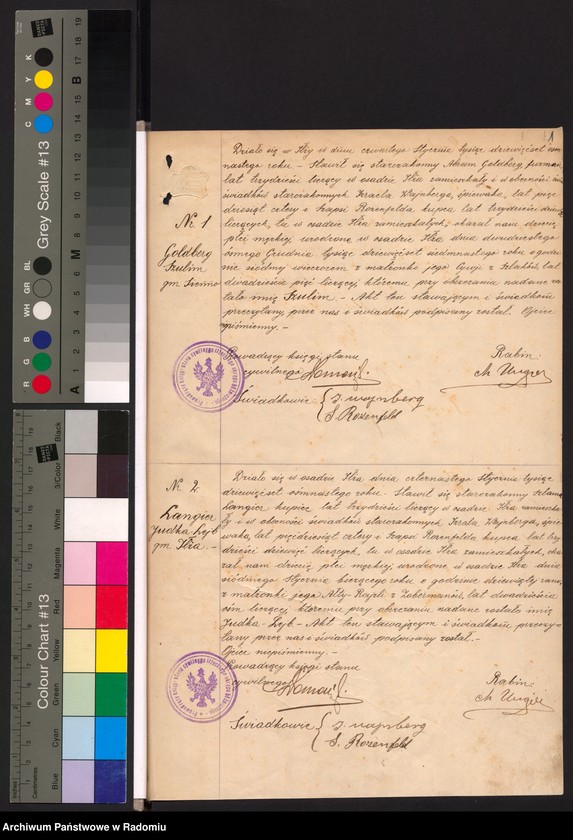 1
Działo się w Iłży w dniu czwartego Stycznia tysiąc dziewięćset ośm-
nastego roku. – Stawił się starozakonny Akum Goldberg, furman
lat trzydzieści liczący w osadzie Iłża zamieszkały i w obecności
świadków starozakonnych Izraela Wajnberga, śpiewaka, lat pięć-
dziesiąt cztery i Szapsi Rozenfelda kupca lat trzydzieści dziewięć
liczących, tu w osadzie Iłża zamieszkałych, okazał nam dziecię
płci męzkiej urodzone w osadzie Iłża dnia dwudziestego
ósmego Grudnia tysiąc dziewięćset siedmnastego roku o godzi-
nie siódmej wieczorem z małżonki jego z Żelazków, lat
dwadzieścia pięć liczącej, któremu przy obrzezaniu nadane zo-
stało imię Szulim. – Akt ten stawającym i świadkom
przeczytany, przez nas i świadków podpisany został. Ojciec
niepiśmienny. –
Nr. 1
Goldberg
Szulim
gm. Sienno
Prowadzący księgi stanu
cywilnego
Rabin
M. Unger
Świadkowie { I. Wajnberg
S. Rozenfeld
Nr. 2
Langier
Judka Lejb
gm. Iłża. –
Działo się w osadzie Iłża dnia czternastego Stycznia tysiąc
dziewięćset ośmnastego roku. Stawił się starozakonny Szlama
Langier kupiec lat trzydzieści liczący w osadzie Iłża zamieszka-
ły i w obecności świadków starozakonnych Izraela Wajnberga, śpie-
waka, lat pięćdziesiąt cztery i Szapsi Rozenfelda kupca lat trzy-
dzieści dziewięć liczących, tu w osadzie Iłża zamieszkałych, oka-
zał nam dziecię, płci męzkiej, urodzone w osadzie Iłża dnia
siódmego Stycznia bieżącego roku o godzinie dziewiątej rano,
z małżonki jego Ałty-Rajzli z lat dwadzieścia
ośm liczącej, któremu przy obrzezaniu nadane zostało imię
Judka-Lejb – Akt ten stawającym i świadkom przeczy-
tany przez nas i świadków podpisany został. –
Ojciec niepiśmienny. –
Prowadzący księgi stanu
cywilnego
Rabin
M. Unger
Świadkowie { I. Wajnberg
S. Rozenfeld
Grey Scale #13
C M Y K
R G B WH GR BL
A 1 2 3 4 5 6 M 8 9 10 11 12 13 14 15 B 17 18 19
Colour Chart #13
Blue Cyan Green Yellow Red Magenta White 3/Color Black
Inches
Centimetres
Archiwum Państwowe w Radomiu